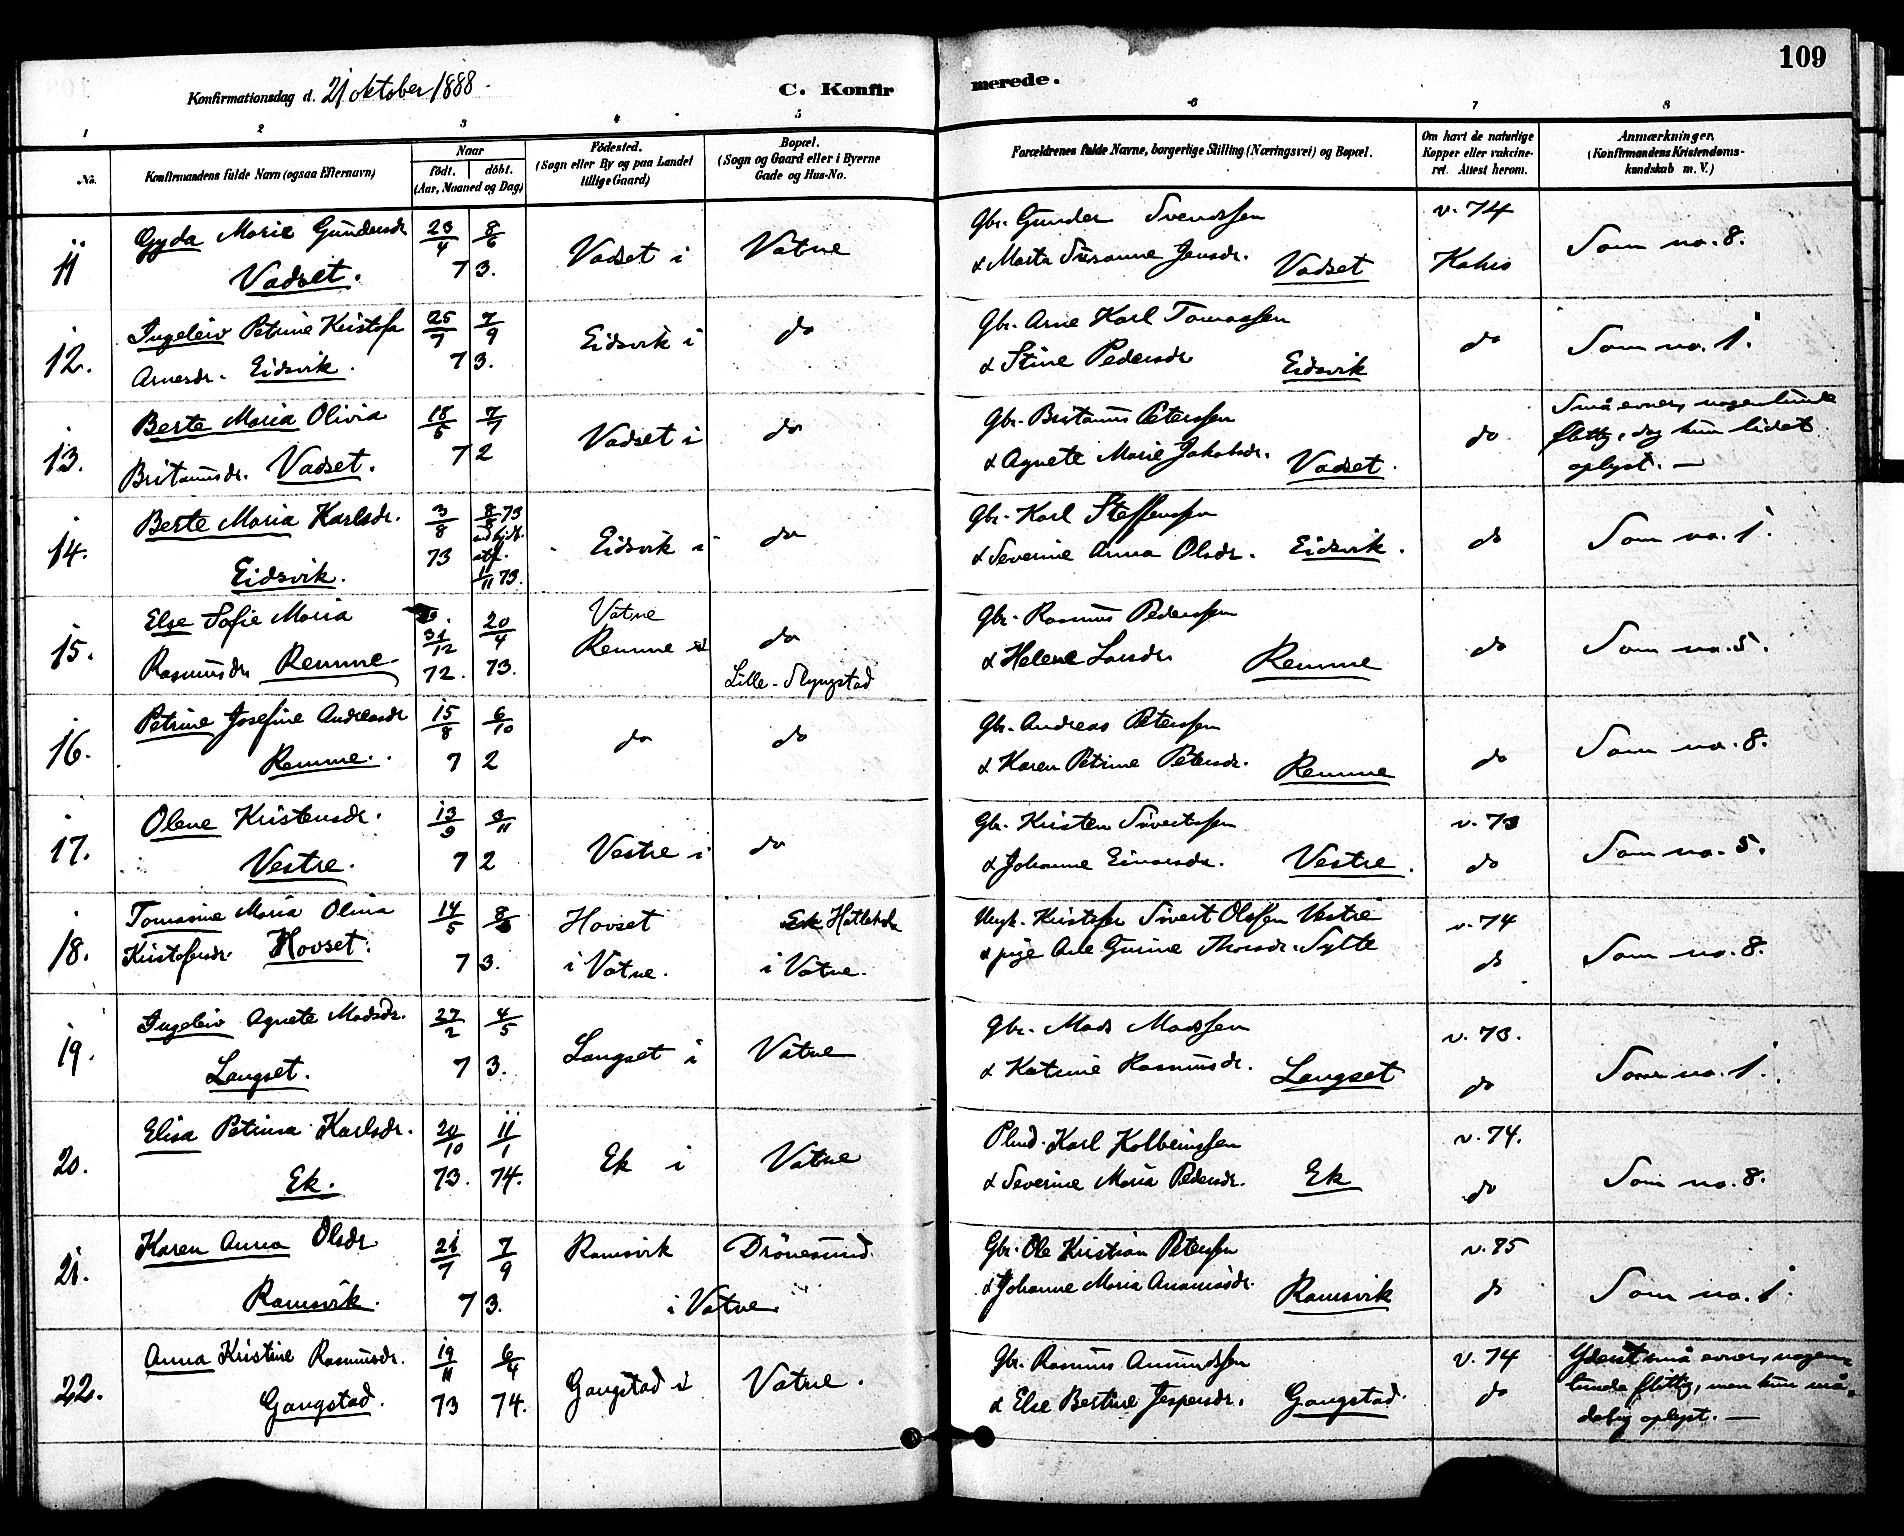 109
Konfirmationsdag d. 21 oktober 1888.
C. Konfirmerede.
1 2 3 4 5 6 7 8
No.
Konfirmandens fulde Navn (ogsaa Efternavn)
Naar
født. døbt.
(Aar, Maaned og Dag)
Fødested.
(Sogn eller By og paa Landet
tillige Gaard)
Bopæl.
(Sogn og Gaard eller i Byerne
Gade og Hus-No.
Forældrenes fulde Navne, borgerlige Stilling (Næringsvei) og Bopæl.
Om havt de naturlige
Kopper eller vakcineret. Attest herom.
Anmærkninger.
(Konfirmandens Kristendomskundskab m. V.)
11 Gyda Marie Gundersdr. 23/4 8/6 Vadset i Vatne Gbr. Gunder Svendssen v. 74 Som no. 8.
Vadset. 73. & Marta Susanne Jensdr. Vadset
12. Ingeleiv Petrine Kristofa 25/7 7/9 Eidsvik i do Gbr. Arne Karl Tomassen do Som no. 1.
Arnesdr. Eidsvik. 73. & Stine Pedersdr Eidsvik
13. Berte Maria Olivia 18/5 7/7 Vadset i do Gbr. Britanus Peterssen do Små evner, nogenlunde
flittig, dog kun lidet
oplyst. —
Britanusdr. Vadset. 72 & Agnete Marie Jakobsdr. Vadset.
14. Berte Maria Karlsdr. 3/8 73 8/8 73 Eidsvik i do Gbr. Karl Steffenssen do Som no. 1.
Eidsvik. 11/11 73. & Severine Anna Olsdr. Eidsvik.
15. Else Sofie Maria 31/12 20/4 Vatne do Gbr. Rasmus Pederssen do Som no. 5.
Rasmusdr Remme 72. 73. Remme Lille-Slyngstad & Helene Larsdr Remme
16. Petrine Josefine Andreasdr 15/8 6/10 do do Gbr. Andreas Peterssen do Som no. 8.
Remme. 72 & Karen Petrine Petersdr. Remme
17. Olene Kristensdr. 13/9 3/11 Vestre i do Gbr. Kristen Sivertssen v. 73 Som no. 5.
Vestre. 72 & Johanne Einarsdr. Vestre. do
18. Tomasine Maria Olina 14/5 8/6 Hovset Ungk. Kristofer Sivert Olssen Vestre v. 74 Som no. 8.
Kristofersdr. Hovset. 73. i Vatne. i Vatne. & pige Ane Gurine Thoresdr. Sylte do
19. Ingeleiv Agnete Madsdr. 27/2 4/5 Langset i Vatne Gbr. Mads Madssen v. 73. Som no. 1.
Langset. 73. & Katrine Rasmusdr. Langset do
20. Elisa Petrina Karlsdr. 20/10 11/1 Ek i Vatne Karl Kolbeinssen v. 74. Som no. 8.
Ek. 73. 74. & Severine Maria Pedersdr. Ek do
21. Karen Anna Olsdr 21/7 7/9 Ramsvik Drönesund. Gbr. Ole Kristian Peterssen v. 85 Som no. 1.
Ramsvik. 73. i Vatne & Johanne Maria Ananiasdr. Ramsvik do
22. Anna Kristine Rasmusdr. 19/11 6/4 Gangstad i Vatne. Gbr. Rasmus Amundssen v. 74 Yderst små evner, nogenlunde flittig, men kun mådelig oplyst. —
Gangstad. 73 74. & Else Bertine Jespersdr. Gangstad. do